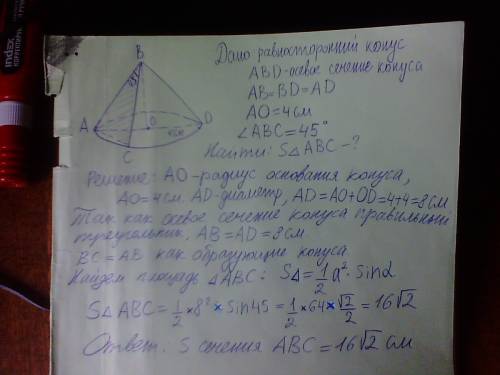 index
КОРРЕКТОР
Дано: равносторонний конус
ABD-осевое сечение конуса
AB=BD=AD
AO=4см
∠ABC=45°
Найти: S△ABC-?
B
45°
A
O
4см
D
C
Решение: AO-радиус основания конуса,
AO=4см. AD-диаметр, AD=AO+OD=4+4=8см
Так как осевое сечение конуса правильный
треугольник. AB=AD=8см.
BC=AB как образующие конуса.
Найдем площадь △ABC: S△=1/2 a²·sinα
S△ABC=1/2×8²×sin45=1/2×64×√2/2=16√2
Ответ: S сечения ABC=16√2 см